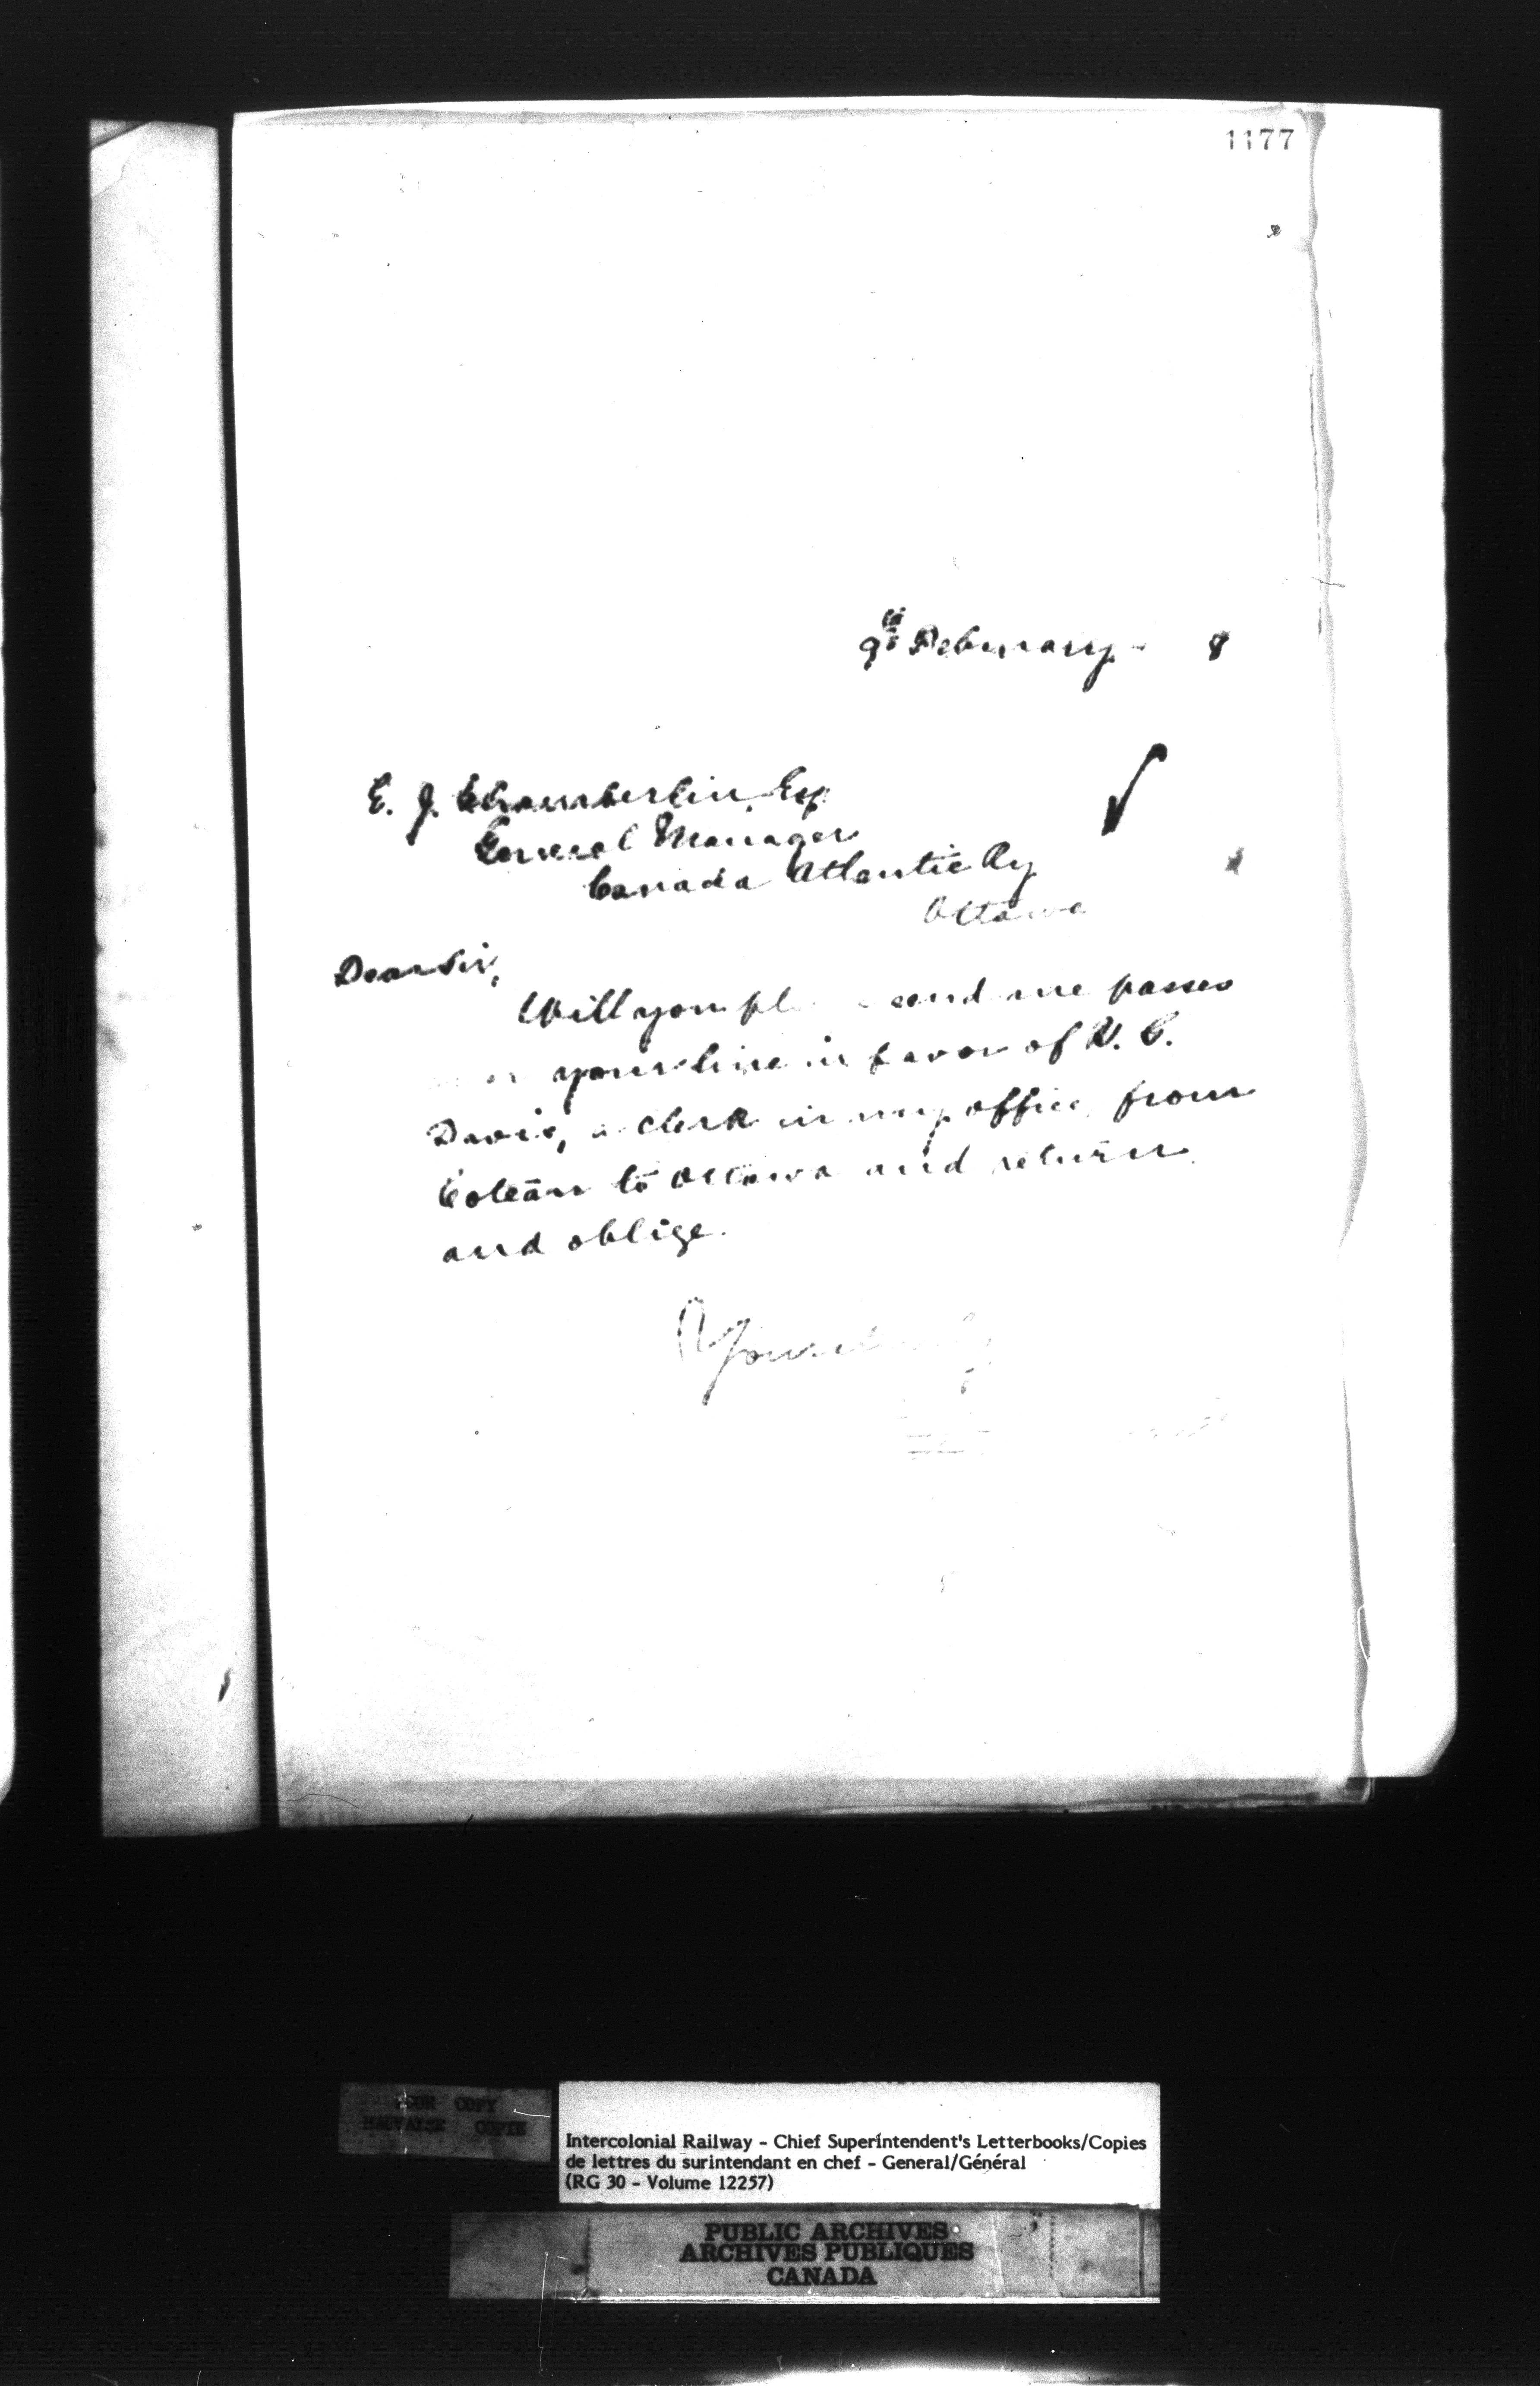 1177
9th February 8
E. J. Chamberlin, Esq
General Manager
Canada Atlantic Ry
Ottawa
Dear Sir,
Will you send me passes
your line in favor of
Davis, a clerk in my office, from
Coteau to Ottawa and return
and oblige.
Yours
POOR COPY
MAUVAISE COPIE
Intercolonial Railway - Chief Superintendent's Letterbooks/Copies
de lettres du surintendant en chef - General/Général
(RG 30 - Volume 12257)
PUBLIC ARCHIVES
ARCHIVES PUBLIQUES
CANADA